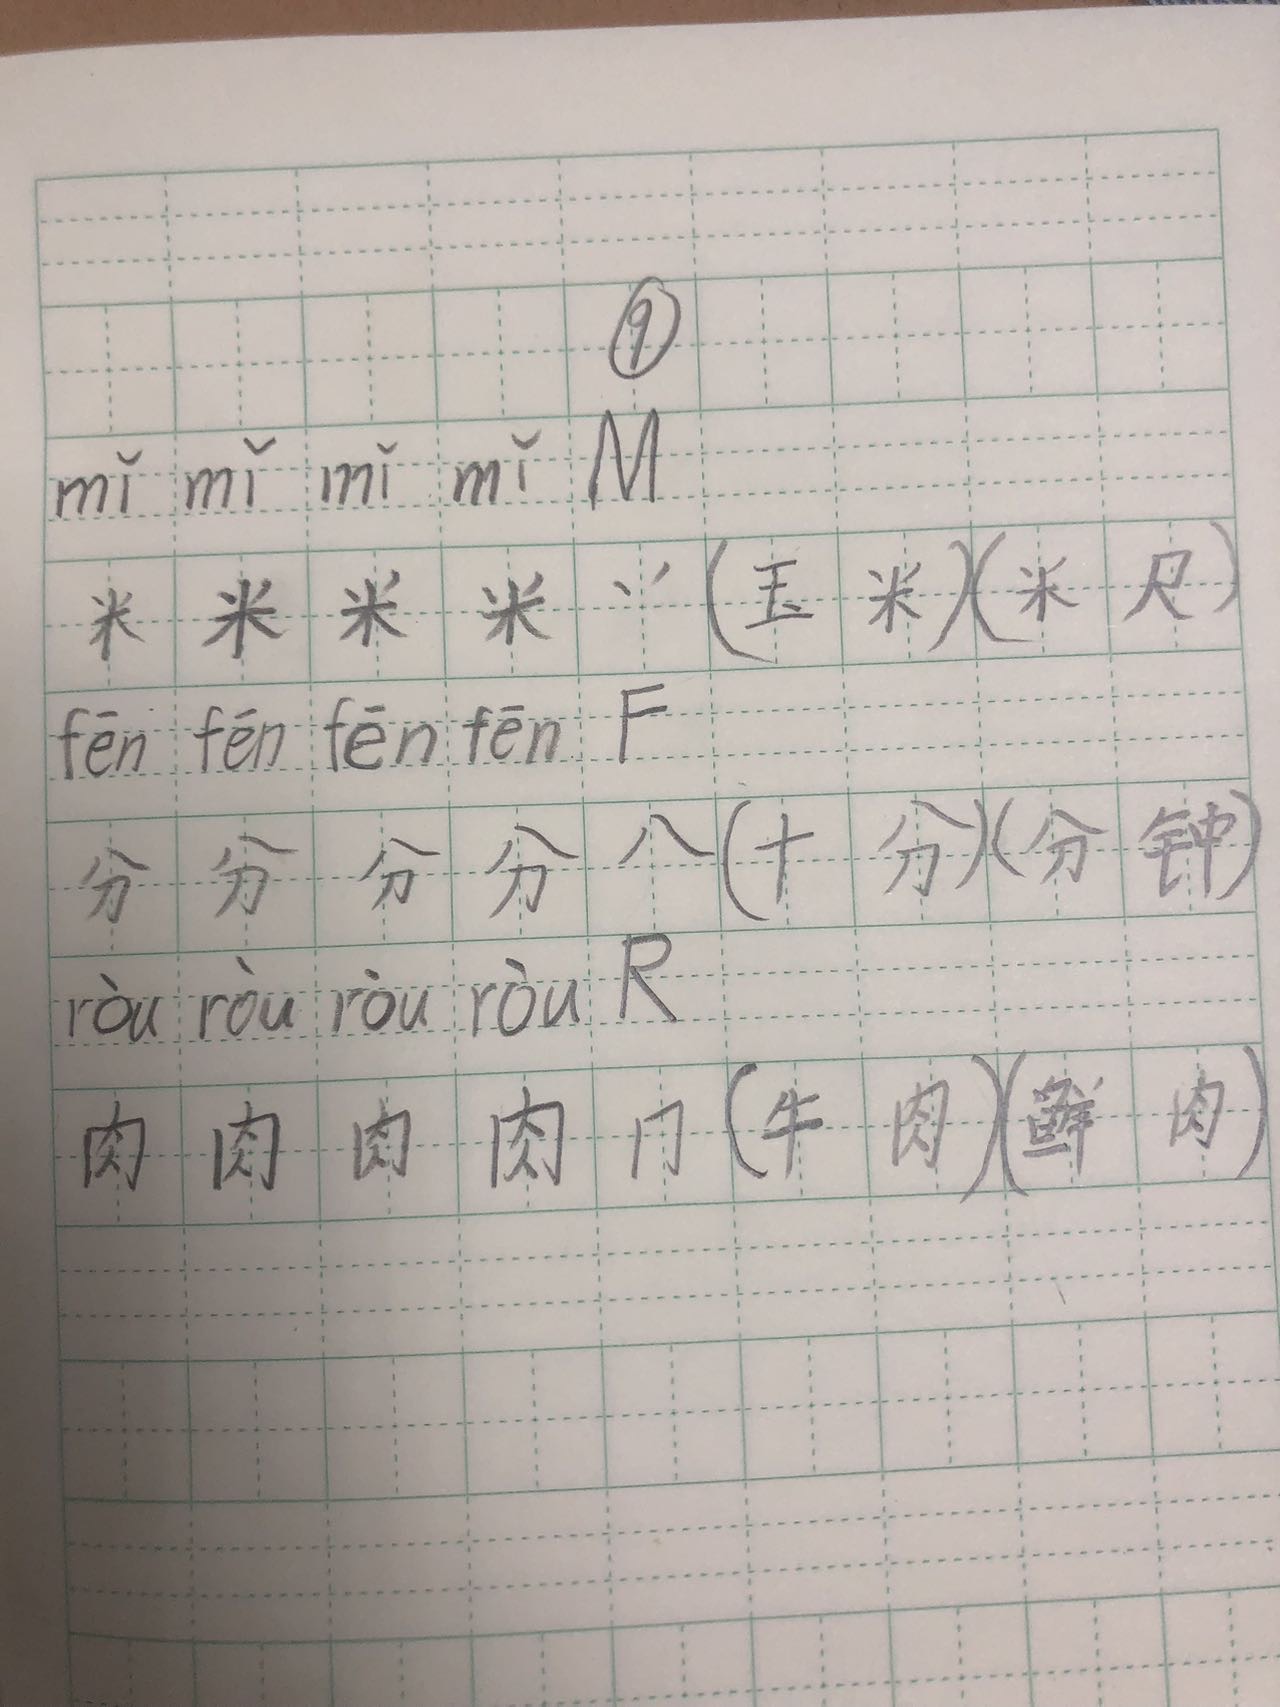 ⑨
mǐ mǐ mǐ mǐ M
米 米 米 米 丷 (玉 米)(米 尺)
fēn fēn fēn fēn F
分 分 分 分 八 (十 分)(分 钟)
ròu ròu ròu ròu R
肉 肉 肉 肉 冂 (牛 肉)(鲜 肉)